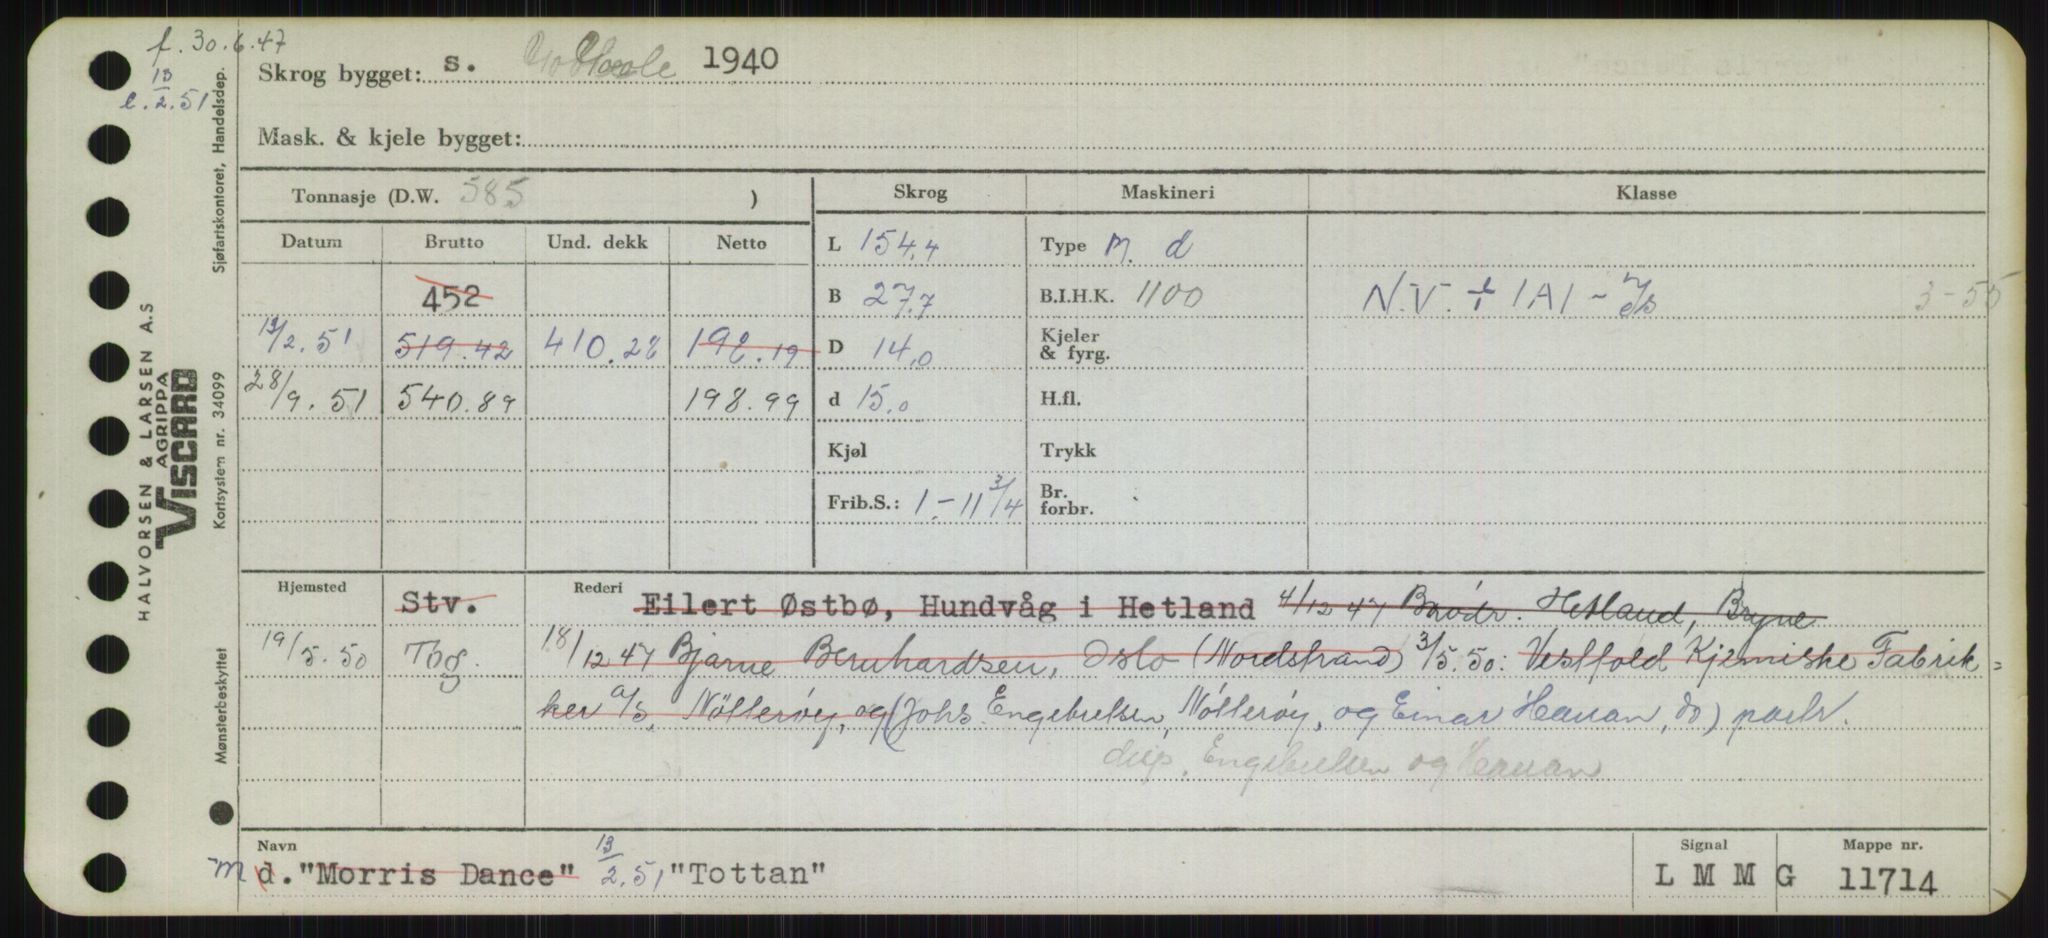 f. 30.6.47
13
e. 2.51
Skrog bygget: s. 1940
Mask. & kjele bygget:
Tonnasje (D.W. 585 )
Skrog Maskineri Klasse
Datum Brutto Und. dekk Netto
L 154,4 Type M. d
452
B 27,7 B.I.H.K. 1100 N.V. 1A1 - 3-55
13/2.51 519.42 410.28 198.19
D 14,0 Kjeler & fyrg.
28/9.51 540.89 198.99
d 15,0 H.fl.
Kjøl Trykk
Frib.S.: 1.-11 3/4 Br. forbr.
Hjemsted Stv. Rederi Eilert Østbø, Hundvåg i Hetland 4/12 47 Brødr. Hetland, Bryne
19/5.50 Tbg. 18/12 47 Bjarne Bernhardsen, Oslo (Nordstrand) 3/5.50: Vestfold Kjemiske Fabrik=
ker a/s, Nötterøy, og (Johs. Engebretsen, Nötterøy, og Einar Hauan, do) partr.
disp. Engebretsen og Hauan
Navn 13
M d. "Morris Dance" 2.51 "Tottan"
Signal L M M G
Mappe nr. 11714
Sjøfartskontoret, Handelsdep.
HALVORSEN & LARSEN A.S
AGRIPPA
VISCARD
Kortsystem nr. 34099
Mønsterbeskyttet